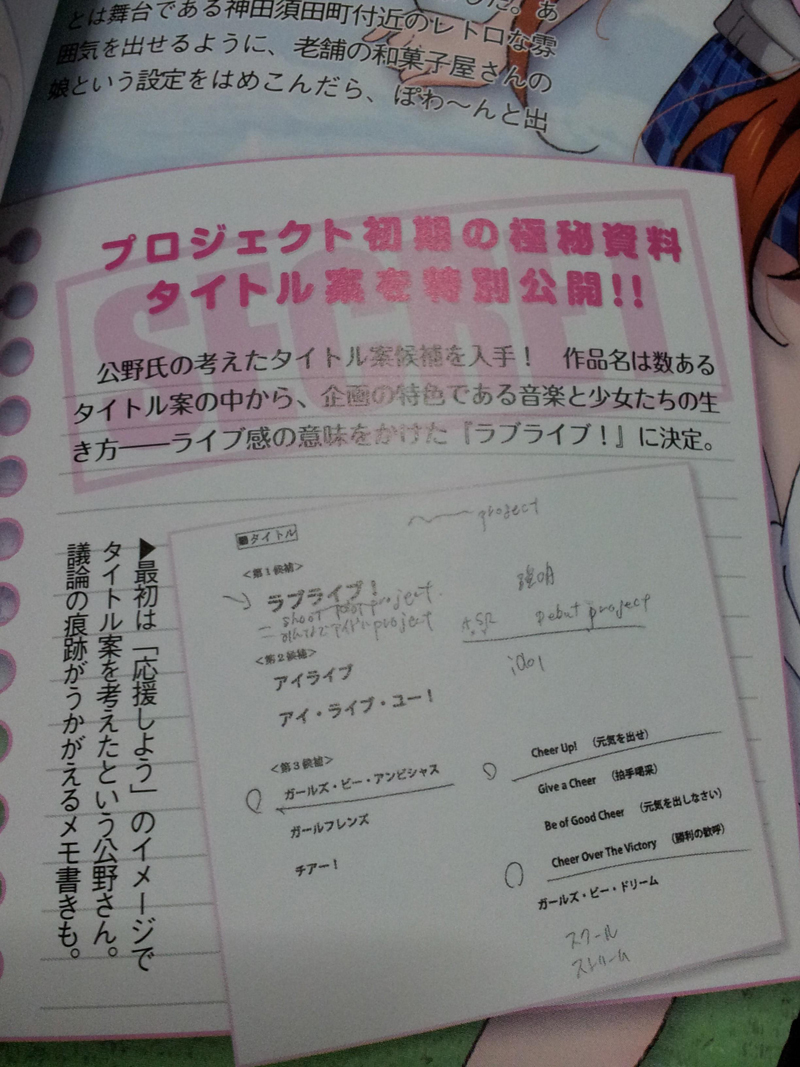 とは舞台である神田須田町付近のレトロな雰
囲気を出せるように、老舗の和菓子屋さんの
娘という設定をはめこんだら、ぽわ〜んと出
SECRET
プロジェクト初期の極秘資料
タイトル案を特別公開!!
公野氏の考えたタイトル案候補を入手！　作品名は数ある
タイトル案の中から、企画の特色である音楽と少女たちの生
き方――ライブ感の意味をかけた『ラブライブ！』に決定。
▶最初は「応援しよう」のイメージで
タイトル案を考えたという公野さん。
議論の痕跡がうかがえるメモ書きも。
project
■タイトル
<第1候補>
ラブライブ！
shoot project
みんなでアイドルproject
Debut project
idol
<第2候補>
アイライブ
アイ・ライブ・ユー！
<第3候補>
ガールズ・ビー・アンビシャス
ガールフレンズ
チアー！
Cheer Up!　（元気を出せ）
Give a Cheer　（拍手喝采）
Be of Good Cheer　（元気を出しなさい）
Cheer Over The Victory　（勝利の歓呼）
ガールズ・ビー・ドリーム
スクール
ストリーム